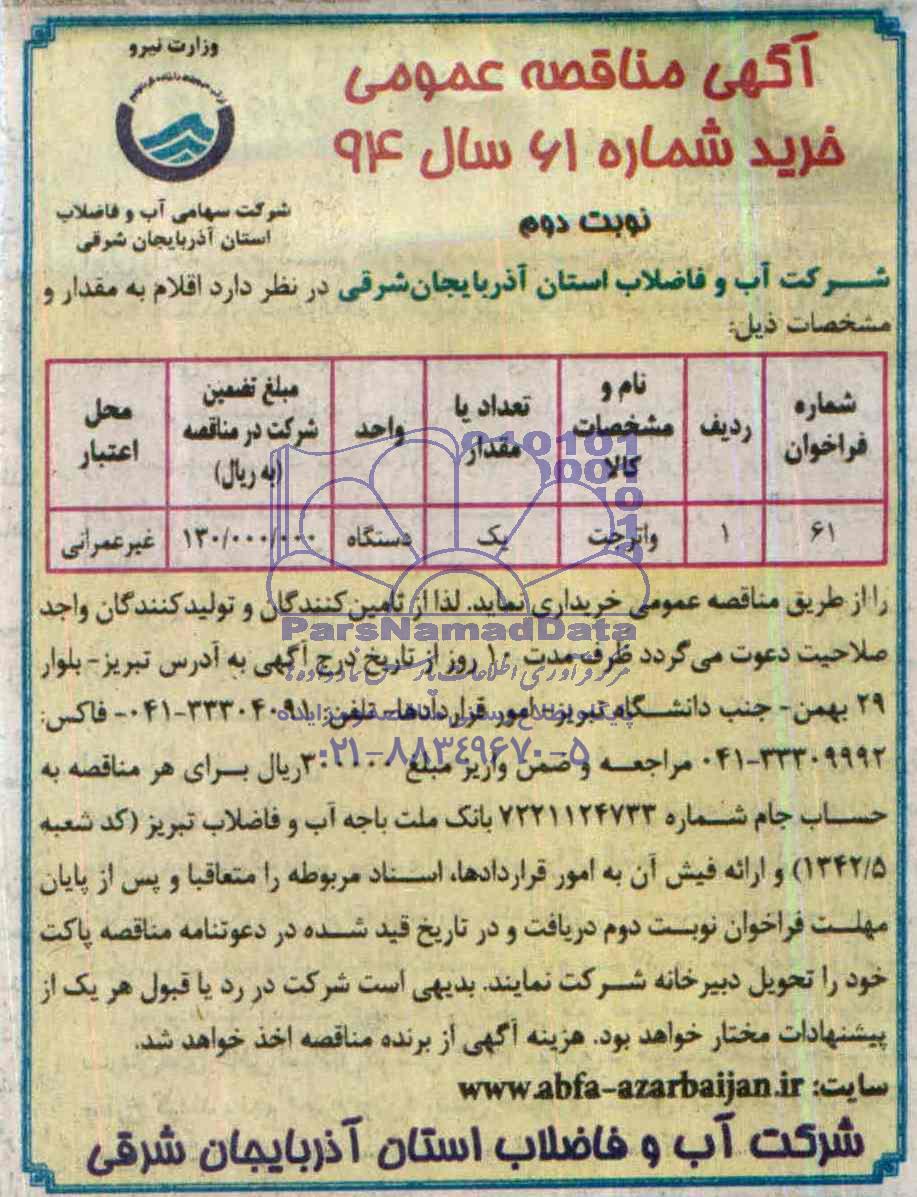 وزارت نیرو
شرکت سهامی آب و فاضلاب
استان آذربایجان شرقی
آگهی مناقصه عمومی
خرید شماره ۶۱ سال ۹۴
نوبت دوم
شرکت آب و فاضلاب استان آذربایجان‌شرقی در نظر دارد اقلام به مقدار و
مشخصات ذیل:
شماره فراخوان | ردیف | نام و مشخصات کالا | تعداد یا مقدار | واحد | مبلغ تضمین شرکت در مناقصه (به ریال) | محل اعتبار
۶۱ | ۱ | واترجت | یک | دستگاه | ۱۳۰/۰۰۰/۰۰۰ | غیرعمرانی
را از طریق مناقصه عمومی خریداری نماید. لذا از تامین‌کنندگان و تولیدکنندگان واجد
صلاحیت دعوت می‌گردد ظرف مدت ۱۰ روز از تاریخ درج آگهی به آدرس تبریز- بلوار
۲۹ بهمن- جنب دانشگاه تبریز- امور قراردادها- تلفن: ۳۳۳۰۴۰۹۱-۰۴۱- فاکس:
۳۳۳۰۹۹۹۲-۰۴۱ مراجعه و ضمن واریز مبلغ ریال برای هر مناقصه به
حساب جام شماره ۷۲۲۱۱۲۴۷۳۳ بانک ملت باجه آب و فاضلاب تبریز (کد شعبه
۱۳۴۲/۵) و ارائه فیش آن به امور قراردادها، اسناد مربوطه را متعاقبا و پس از پایان
مهلت فراخوان نوبت دوم دریافت و در تاریخ قید شده در دعوتنامه مناقصه پاکت
خود را تحویل دبیرخانه شرکت نمایند. بدیهی است شرکت در رد یا قبول هر یک از
پیشنهادات مختار خواهد بود. هزینه آگهی از برنده مناقصه اخذ خواهد شد.
سایت: www.abfa-azarbaijan.ir
شرکت آب و فاضلاب استان آذربایجان شرقی
ParsNamadData
۰۲۱-۸۸۳۴۹۶۷۰-۵